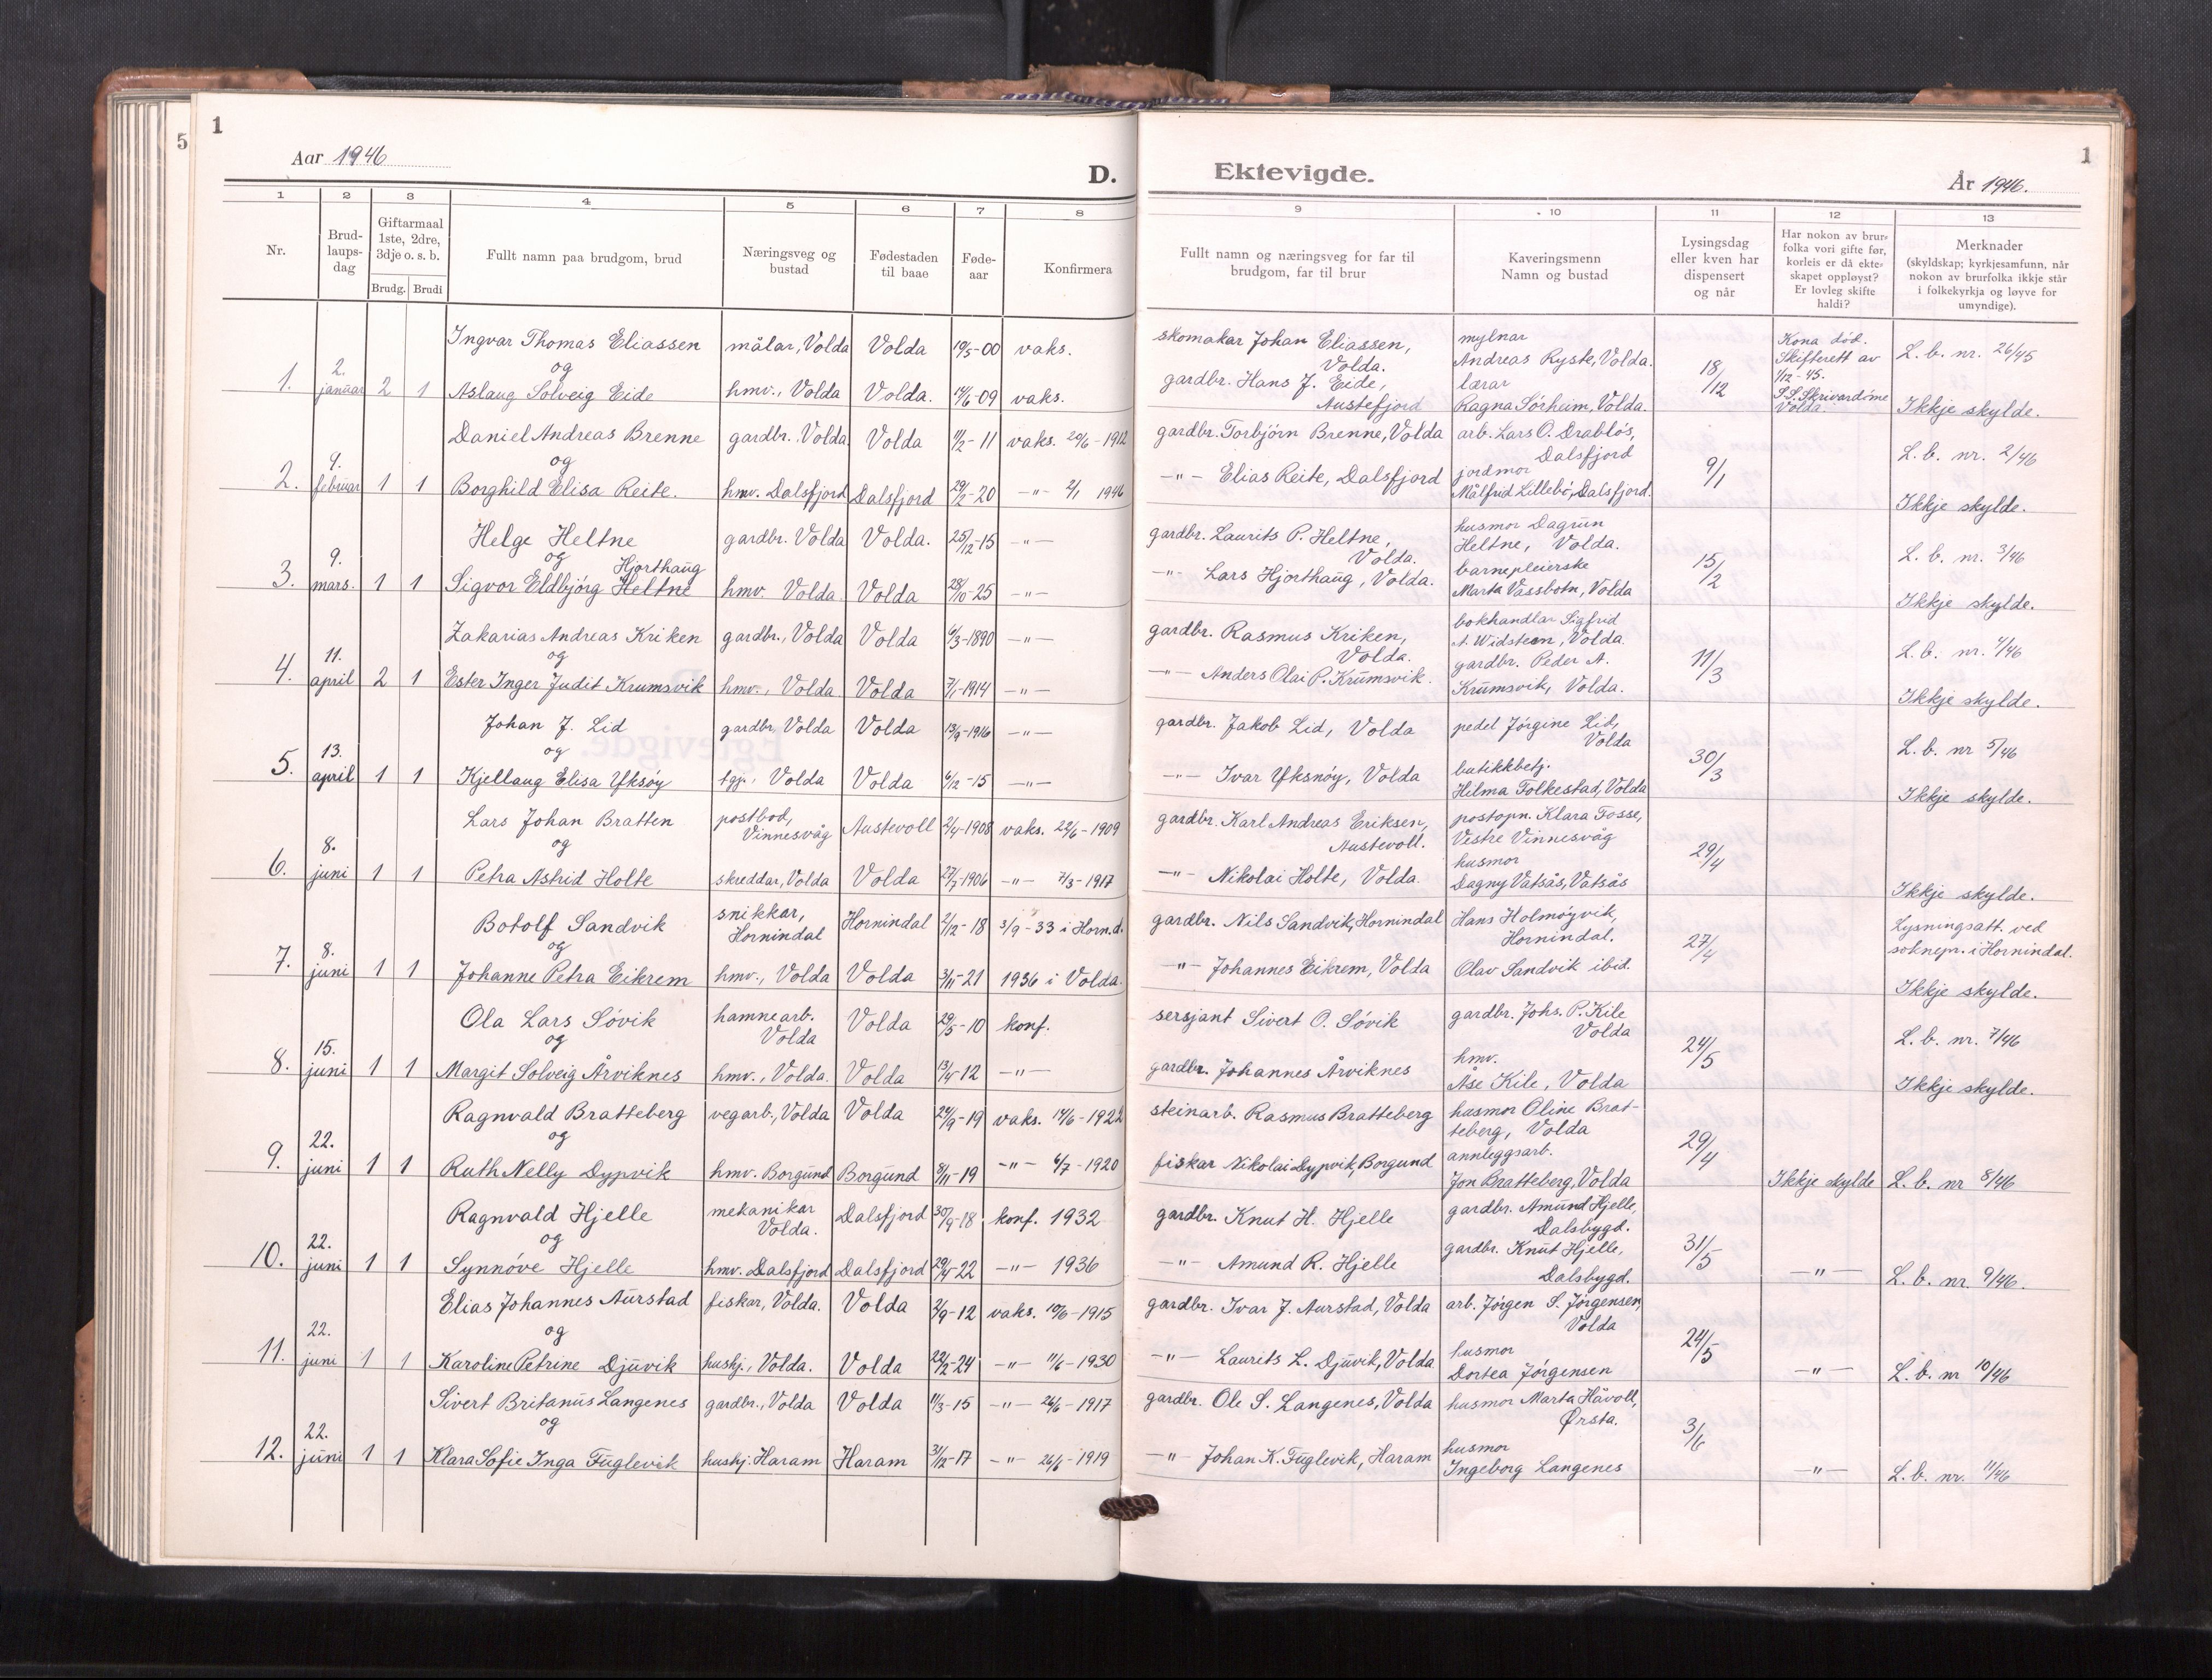 5
1
Aar 1946
D.
Ektevigde.
År 1946.
1
1 2 3 4 5 6 7 8
Nr.
Brud-
laups-
dag
Giftarmaal
1ste, 2dre,
3dje o. s. b.
Brudg. Brudi
Fullt namn paa brudgom, brud
Næringsveg og
bustad
Fødestaden
til baae
Føde-
aar
Konfirmera
9 10 11 12 13
Fullt namn og næringsveg for far til
brudgom, far til brur
Kaveringsmenn
Namn og bustad
Lysingsdag
eller kven har
dispensert
og når
Har nokon av brur-
folka vori gifte før,
korleis er då ekte-
skapet oppløyst?
Er lovleg skifte
haldi?
Merknader
(skyldskap; kyrkjesamfunn, når
nokon av brurfolka ikkje står
i folkekyrkja og løyve for
umyndige).
1. 2. januar 2 1
Ingvar Thomas Eliassen målar, Volda Volda 19/5-00 vaks.
og
Aslaug Solveig Eide hmv., Volda Volda. 14/6-09 vaks.
skomakar Johan Eliassen,
Volda.
gardbr. Hans J. Eide,
Austefjord
mylnar
Andreas Ryste, Volda.
lærar
Ragna Sørheim, Volda.
18/12
Kona død.
Skifterett av
1/12-45.
S.S. Skrivardøme
Volda.
L. b. nr. 26/45
Ikkje skylde.
2. 4. februar 1 1
Daniel Andreas Brenne gardbr. Volda Volda 11/2-11 vaks. 29/6-1912
og
Borghild Elisa Reite. hmv. Dalsfjord Dalsfjord 29/2-20 -"- 2/1 1946
gardbr. Torbjørn Brenne, Volda
-"- Elias Reite, Dalsfjord
arb. Lars O. Drabløs,
Dalsfjord
jordmor
Målfrid Lillebø, Dalsfjord.
9/1
L. b. nr. 2/46
Ikkje skylde.
3. 9. mars. 1 1
Helge Heltne gardbr. Volda Volda. 25/12-15 -"-
og Hjorthaug
Sigvor Eldbjørg Heltne hmv. Volda Volda 28/10-25 -"-
gardbr. Laurits P. Heltne,
Volda.
-"- Lars Hjorthaug, Volda.
husmor Dagrun
Heltne, Volda.
barnepleierske
Marta Vassbotn, Volda
15/2
L. b. nr. 3/46
Ikkje skylde.
4. 11. april 2 1
Zakarias Andreas Kriken gardbr., Volda Volda 6/3-1890 -"-
og
Ester Inger Judit Krumsvik hmv., Volda Volda 7/1-1914 -"-
gardbr. Rasmus Kriken,
Volda.
-"- Anders Olai P. Krumsvik.
bokhandlar Sigfrid
A. Widsteen, Volda.
gardbr. Peder A.
Krumsvik, Volda.
11/3
L. b. nr. 4/46
Ikkje skylde.
5. 13. april 1 1
Johan J. Lid gardbr. Volda Volda 13/9-1916 -"-
og
Kjellaug Elisa Yksøy tgj., Volda Volda 6/12-15 -"-
gardbr. Jakob Lid, Volda
-"- Ivar Yksnøy, Volda
pedel Jørgine Lid,
Volda
butikkbetj.
Hilma Folkestad, Volda
30/3
L. b. nr 5/46
Ikkje skylde.
6. 8. juni 1 1
Lars Johan Bratten postbod,
Vinnesvåg Austevoll 2/4-1908 vaks. 22/6-1909
og
Petra Astrid Holte skreddar, Volda Volda 27/7-1906 -"- 7/3-1917
gardbr. Karl Andreas Eriksen,
Austevoll.
-"- Nikolai Holte, Volda.
postopn. Klara Fosse,
Vestre Vinnesvåg
husmor
Dagny Vatsås, Vatsås
29/4
Ikkje skylde.
7. 8. juni 1 1
Botolf Sandvik snikkar,
Hornindal Hornindal 2/12-18 3/9-33 i Horn.d.
og
Johanne Petra Eikrem hmv., Volda Volda 3/11-21 1936 i Volda.
gardbr. Nils Sandvik, Hornindal
-"- Johannes Eikrem, Volda
Hans Holmøyvik,
Hornindal.
Olav Sandvik ibid.
27/4
Lysningsatt. ved
soknepr. i Hornindal.
Ikkje skylde.
8. 15. juni 1 1
Ola Lars Søvik hamnearb.
Volda Volda 29/5-10 konf.
og
Margit Solveig Årviknes hmv., Volda. Volda 13/4-12 -"-
sersjant Sivert O. Søvik
gardbr. Johannes Årviknes
gardbr. Johs. P. Kile
Volda
hmv.
Åse Kile, Volda
24/5
L. b. nr. 7/46
Ikkje skylde.
9. 22. juni 1 1
Ragnvald Bratteberg vegarb., Volda Volda 24/9-19 vaks. 14/6-1922
og
Ruth Nelly Dypvik hmv. Borgund Borgund 8/11-19 -"- 4/7-1920
steinarb. Rasmus Bratteberg
fiskar Nikolai Dypvik, Borgund
husmor Oline Brat-
teberg, Volda
annleggsarb.
Jon Bratteberg, Volda
29/4
Ikkje skylde L. b. nr 8/46
10. 22. juni 1 1
Ragnvald Hjelle mekanikar
Volda. Dalsfjord 30/9-18 konf. 1932
og
Synnøve Hjelle hmv. Dalsfjord Dalsfjord 29/4-22 -"- 1936
gardbr. Knut H. Hjelle
-"- Amund R. Hjelle
gardbr. Amund Hjelle,
Dalsbygd.
gardbr. Knut Hjelle,
Dalsbygd.
31/5
-"- L. b. nr. 9/46.
11. 22. juni 1 1
Elias Johannes Aurstad fiskar, Volda. Volda 2/9-12 vaks. 10/6-1915
og
Karoline Petrine Djuvik hushj., Volda. Volda 22/2-24 -"- 11/6-1930
gardbr. Ivar J. Aurstad, Volda
-"- Laurits L. Djuvik, Volda
arb. Jørgen S. Jørgensen,
Volda
husmor
Dortea Jørgensen
24/5
-"- L. b. nr 10/46
12. 22. juni 1 1
Sivert Britanus Langenes gardbr., Volda Volda 11/3-15 -"- 26/6-1917
og
Klara Sofie Inga Fuglevik hushj. Haram Haram 31/12-17 -"- 26/6-1919
gardbr. Ole S. Langenes, Volda
-"- Johan K. Fuglevik, Haram
husmor Marta Håvoll,
Ørsta.
husmor
Ingeborg Langenes
3/6
-"- L. b. nr. 11/46